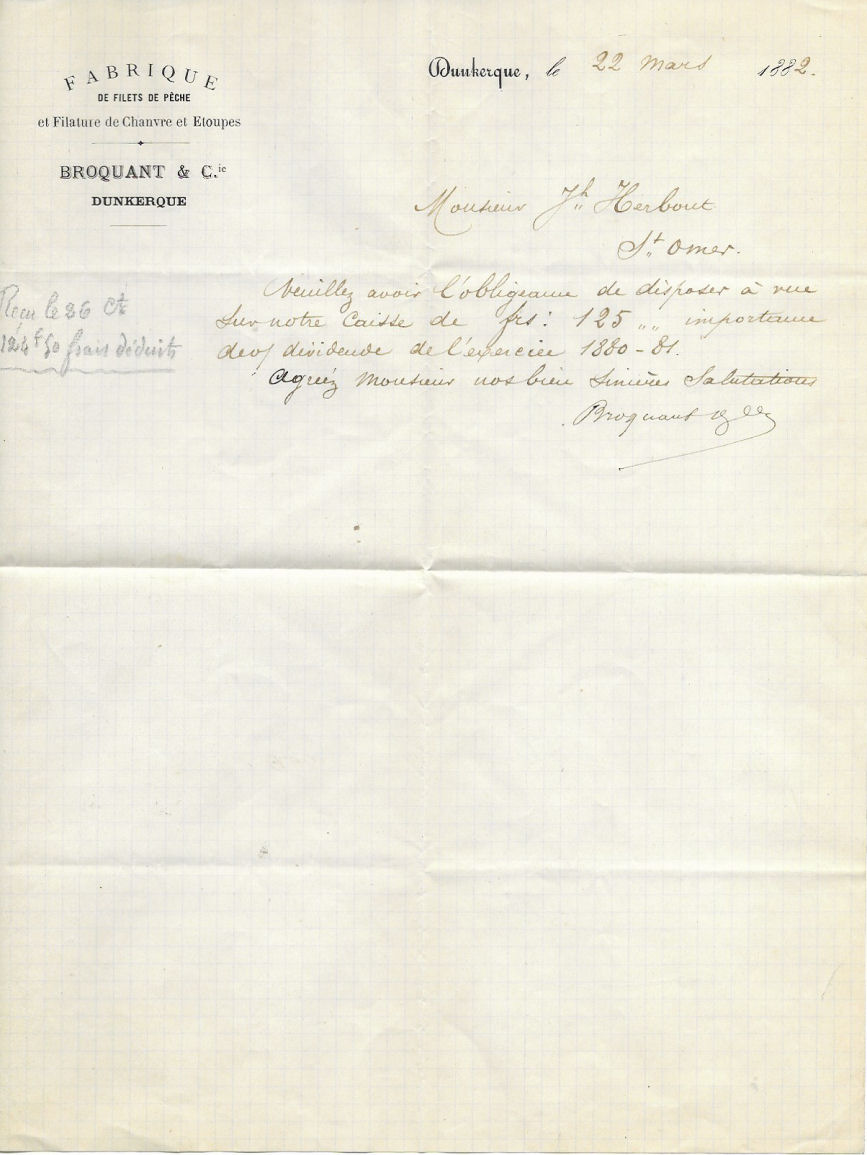 FABRIQUE
DE FILETS DE PÊCHE
et Filature de Chanvre et Etoupes
BROQUANT & C.ie
DUNKERQUE
Dunkerque, le 22 Mars 1882.
Monsieur Jh Herbout
St Omer.
Veuillez avoir l'obligeance de disposer à vue
sur notre Caisse de frs: 125 ,, importance
de v/ dividende de l'exercice 1880-81.
Agréez Monsieur nos bien sincères Salutations
Broquant & Cie
Reçu le 26 Ct
124f50 frais déduits